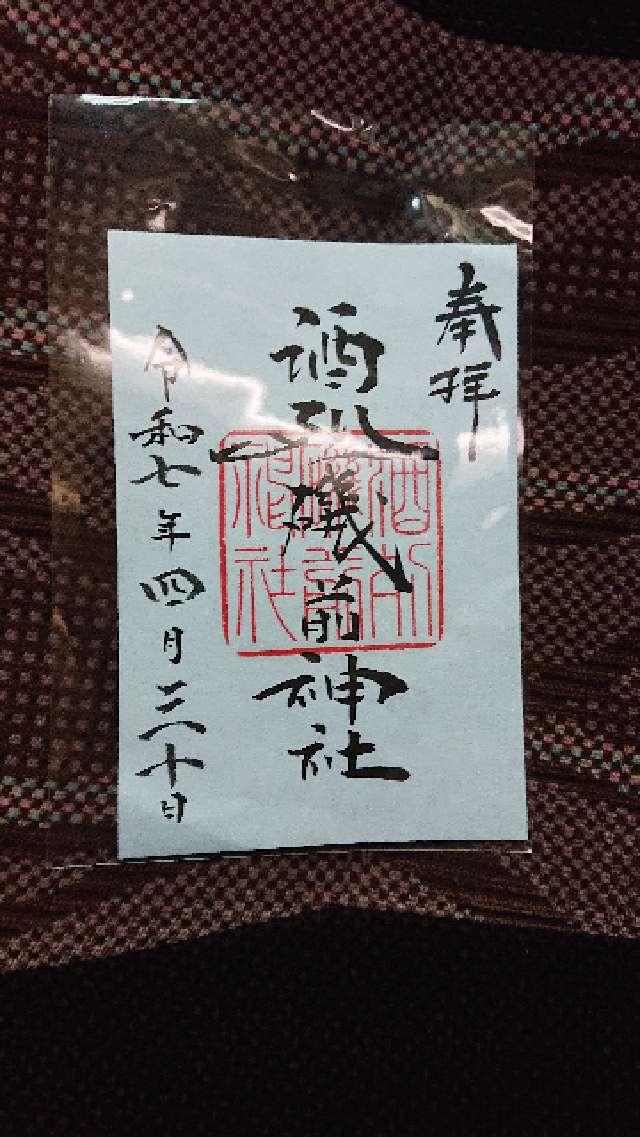 奉拝
酒列磯前神社
酒列
磯前
神社
令和七年四月三十日